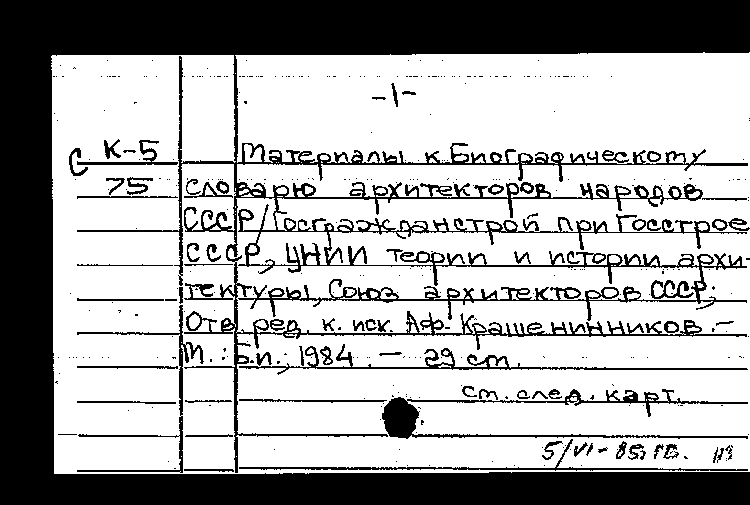 -1-
С К-5 Материалы к Биографическому
75 словарю архитекторов народов
СССР/Госгражданстрой при Госстрое
СССР, ЦНИИ теории и истории архи-
тектуры, Союз архитекторов СССР;
Отв. ред. к. иск. А.Ф. Крашенинников. -
М.: Б.и., 1984. - 29 ст.
см. след. карт.
5/VI-85